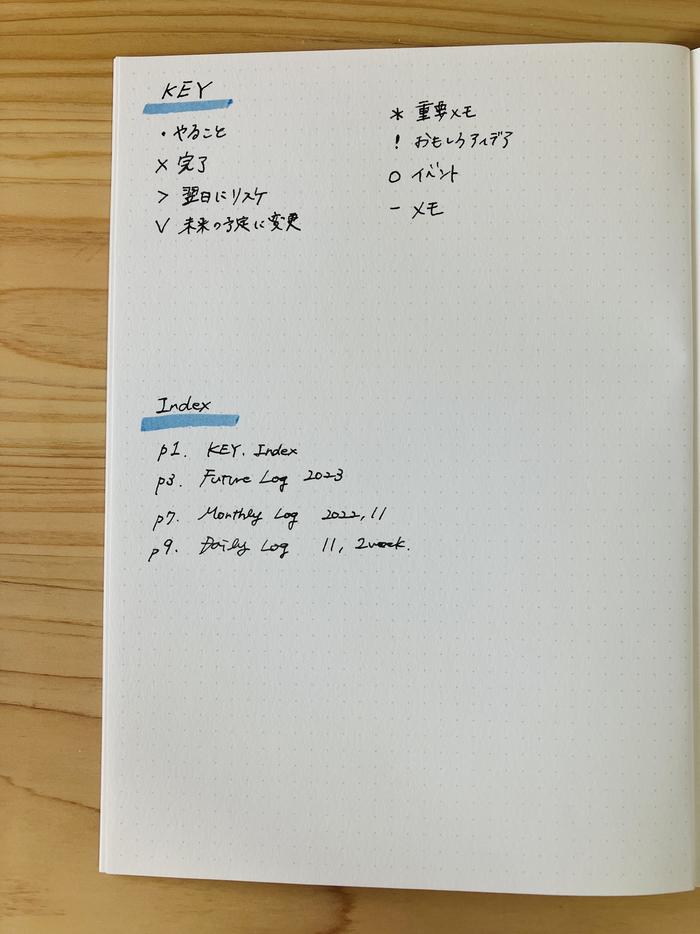 KEY
・やること
× 完了
> 翌日にリスケ
∨ 未来の予定に変更
* 重要メモ
! おもしろアイデア
○ イベント
- メモ
Index
p1. KEY. Index
p3. Future Log 2023
p7. Monthly Log 2022, 11
p9. Daily Log 11, 2week.